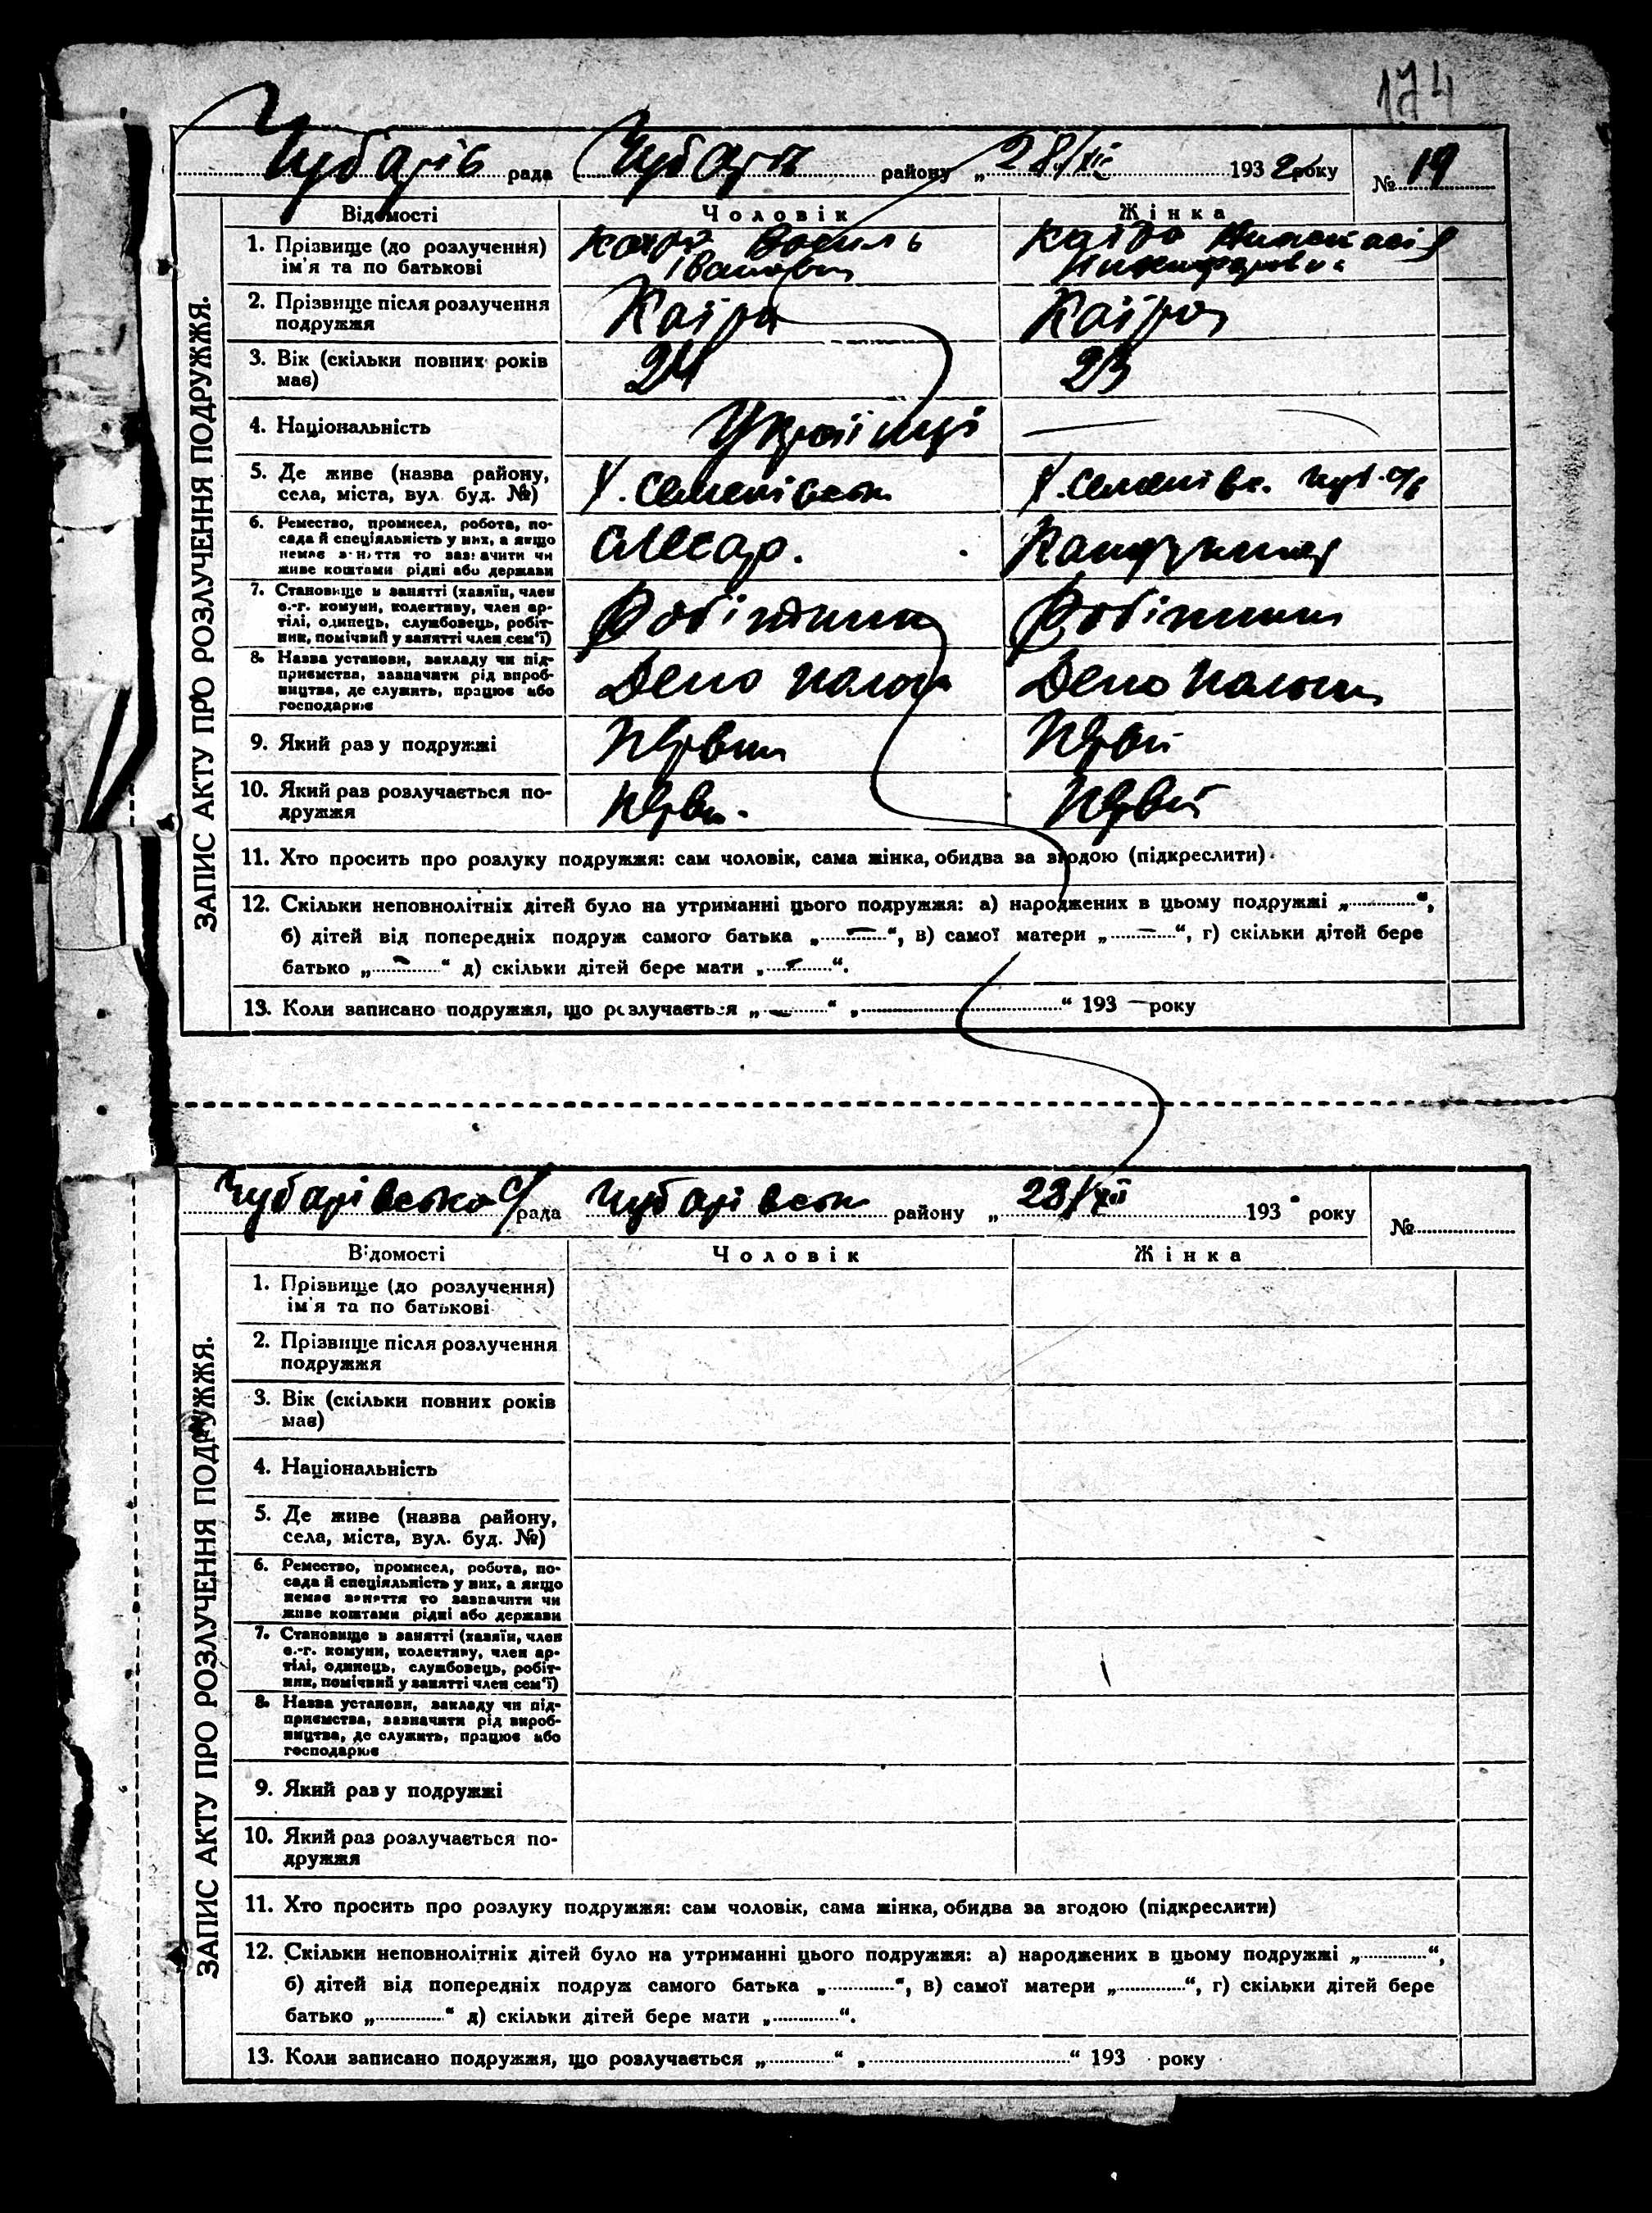 174
Чубарів рада Чубарів району „28/XII 1932 року № 19
ЗАПИС АКТУ ПРО РОЗЛУЧЕННЯ ПОДРУЖЖЯ.
Відомості Чоловік Жінка
1. Прізвище (до розлучення) ім'я та по батькові
Василь Іванович
Каіра Анастасія
2. Прізвище після розлучення подружжя
Каіра Каіра
3. Вік (скільки повних років має)
24 23
4. Національність
Українці —
5. Де живе (назва району, села, міста, вул буд. №)
х. Семенівськ х. Семенівк. Чуб. с/р
6. Ремество, промисел, робота, по-
сада й спеціяльність у них, а якщо
немає заняття то зазначити чи
живе коштами рідні або держави
Слесар.
7. Становище в занятті (хазяїн, член
с.-г. комуни, колективу, член ар-
тілі, одинець, службовець, робіт-
ник, помічний у занятті член сем'ї)
Робітник Робітник
8. Назва установи, закладу чи під-
приємства, зазначити рід вироб-
ництва, де служить, працює або
господарює
Депо Пологи Депо Пологи
9. Який раз у подружжі
Первий Первий
10. Який раз розлучається по-
дружжя
Перви. Первий
11. Хто просить про розлуку подружжя: сам чоловік, сама жінка, обидва за згодою (підкреслити)
12. Скільки неповнолітніх дітей було на утриманні цього подружжя: а) народжених в цьому подружжі „ “,
б) дітей від попередніх подруж самого батька „ — “, в) самої матери „ — “, г) скільки дітей бере
батько „ — “ д) скільки дітей бере мати „ — “.
13. Коли записано подружжя, що розлучається „ — “ „ “ 193 — року
Чубарівська с/рада Чубарівськ району „28/XII 193 року №
ЗАПИС АКТУ ПРО РОЗЛУЧЕННЯ ПОДРУЖЖЯ.
Відомості Чоловік Жінка
1. Прізвище (до розлучення)
ім'я та по батькові
2. Прізвище після розлучення
подружжя
3. Вік (скільки повних років
має)
4. Національність
5. Де живе (назва району,
села, міста, вул. буд. №)
6. Ремество, промисел, робота, по-
сада й спеціяльність у них, а якщо
немає заняття то зазначити чи
живе коштами рідні або держави
7. Становище в занятті (хазяїн, член
с.-г. комуни, колективу, член ар-
тілі, одинець, службовець, робіт-
ник, помічний у занятті член сем'ї)
8. Назва установи, закладу чи під-
приємства, зазначити рід вироб-
ництва, де служить, працює або
господарює
9. Який раз у подружжі
10. Який раз розлучається по-
дружжя
11. Хто просить про розлуку подружжя: сам чоловік, сама жінка, обидва за згодою (підкреслити)
12. Скільки неповнолітніх дітей було на утриманні цього подружжя: а) народжених в цьому подружжі „ “,
б) дітей від попередніх подруж самого батька „ “, в) самої матери „ “, г) скільки дітей бере
батько „ “ д) скільки дітей бере мати „ “.
13. Коли записано подружжя, що розлучається „ “ „ “ 193 року